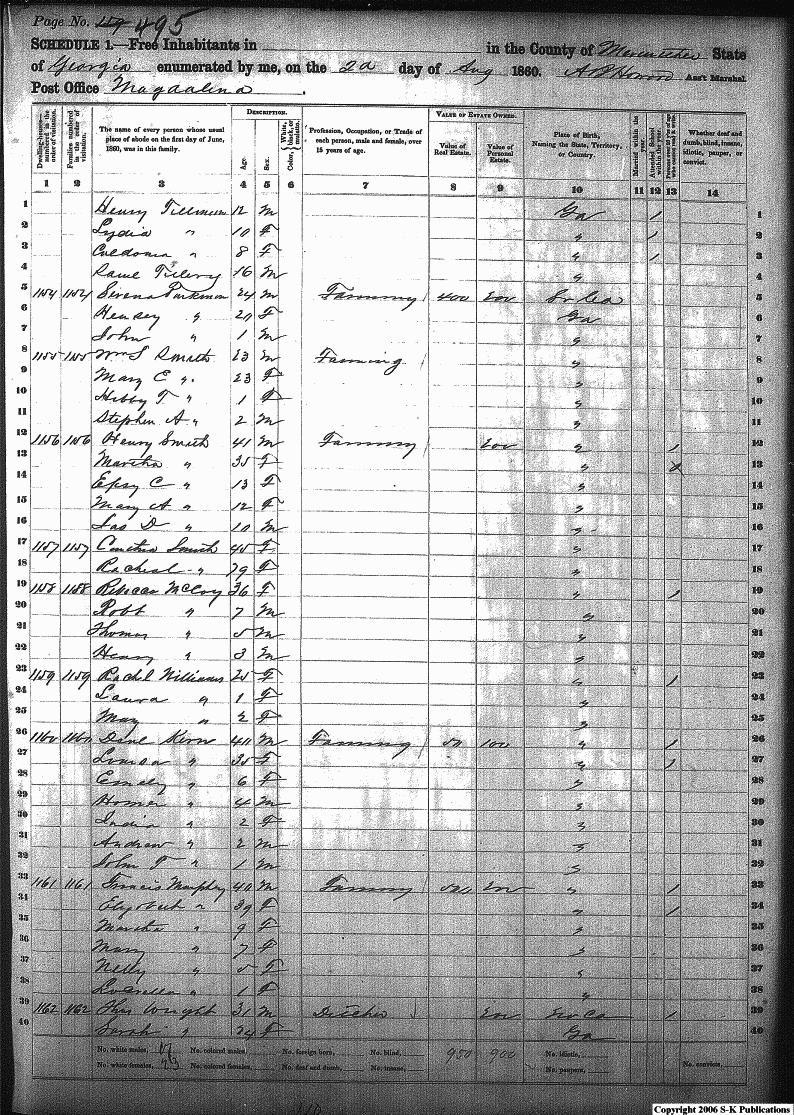 Page No. 159 495
SCHEDULE 1.—Free Inhabitants in in the County of Meriwether State
of Georgia enumerated by me, on the 2d day of Aug 1860. Ass't Marshal
Post Office Magdalina
DESCRIPTION. VALUE OF ESTATE OWNED.
Dwelling-houses—numbered in the order of visitation. Families numbered in the order of visitation. The name of every person whose usual place of abode on the first day of June, 1860, was in this family. Age. Sex. Color, { White, black, or mulatto. Profession, Occupation, or Trade of each person, male and female, over 15 years of age. Value of Real Estate. Value of Personal Estate. Place of Birth, Naming the State, Territory, or Country. Married within the year. Attended School within the year. Persons over 20 y'rs of age who cannot read & write. Whether deaf and dumb, blind, insane, idiotic, pauper, or convict.
1 2 3 4 5 6 7 8 9 10 11 12 13 14
1 Henry 12 M Ga / 1
2 Lydia " 10 F " / 2
3 " 8 F " / 3
4 16 M " 4
5 1154 1154 24 M Farming 400 200 So Ca 5
6 " 20 F Ga 6
7 John " 1 M " 7
8 1155 1155 Wm S 23 M Farming 8
9 Mary E " 23 F " 9
10 " 1 F " 10
11 Stephen A " 2 M " 11
12 1156 1156 Henry Smith 41 M Farming 200 " / 12
13 Martha " 35 F " 13
14 Epsy C " 13 F " 14
15 Mary A " 12 F " 15
16 Jas D " 10 M " 16
17 1157 1157 Smith 45 F " 17
18 Rachael " 79 F " 18
19 1158 1158 Rebecca McCoy 36 F " / 19
20 Robt " 7 M " 20
21 Thomas " 5 M " 21
22 Henry " 3 M " 22
23 1159 1159 Rachel Williams 25 F " / 23
24 Laura " 1 F " 24
25 May " 2 F " 25
26 1160 1160 40 M Farming 50 100 " / 26
27 Louisa " 35 F " / 27
28 Emily " 6 F " 28
29 Homer " 4 M " 29
30 India " 2 F " 30
31 Andrew " 2 M " 31
32 John T " 1 M " 32
33 1161 1161 Francis Murphy 40 M Farming 500 200 " / 33
34 Elizabeth " 39 F " / 34
35 Martha " 9 F " 35
36 Mary " 7 F " 36
37 Nelly " 5 F " 37
38 Louella " 1 F " 38
39 1162 1162 Wright 31 M Ditcher 200 No Ca / 39
40 Sarah " 24 F Ga 40
No. white males, 17 No. colored males, No. foreign born, No. blind, 950 900 No. idiotic,
No. white females, 23 No. colored females, No. deaf and dumb, No. insane, No. paupers, No. convicts,
Copyright 2006 S-K Publications